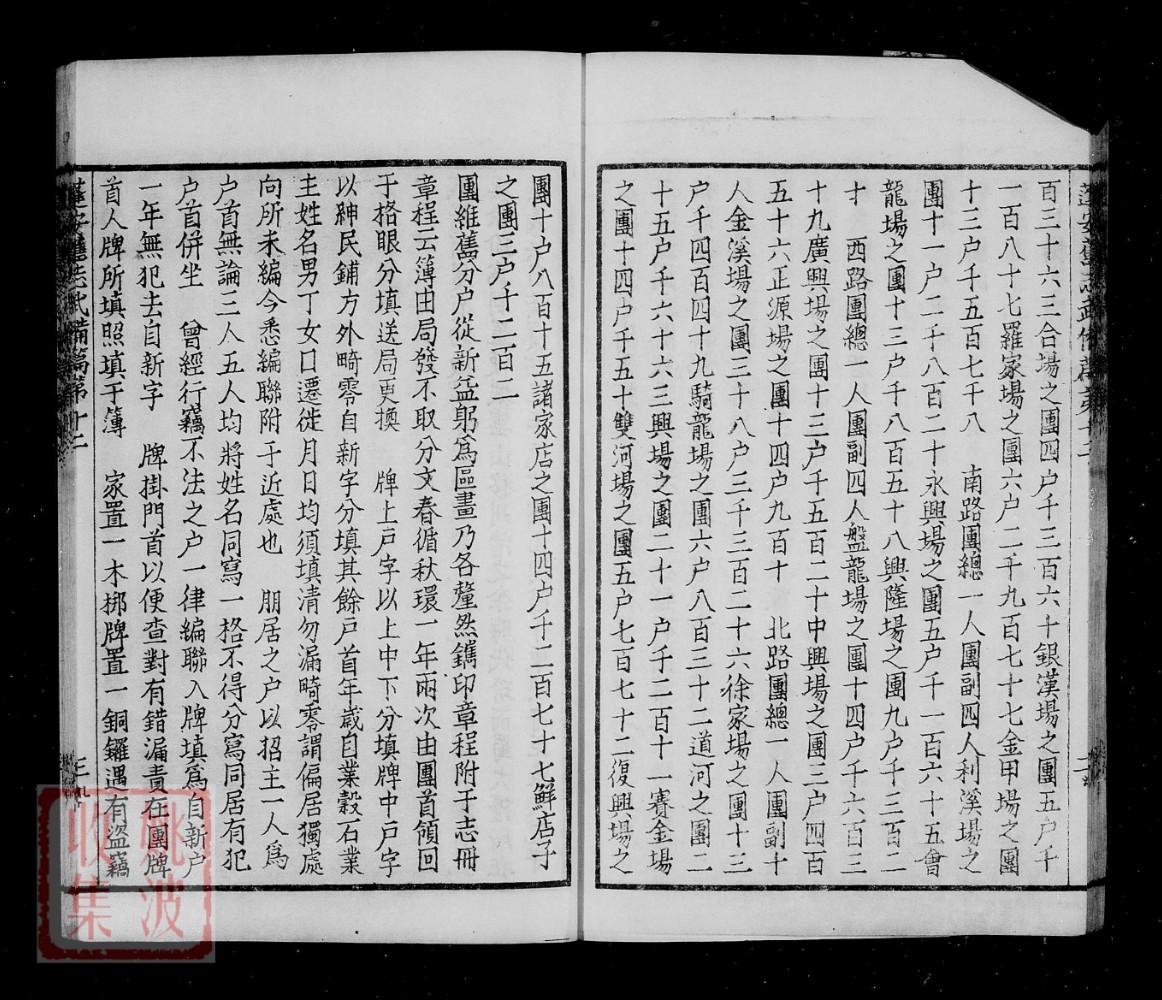 蓬安縣志武備篇第十二
百三十六三合場之團四户千三百六十銀漢場之團五户千
一百八十七羅家場之團六户二千九百七十七金甲場之團
十三户千五百七千八 南路團總一人團副四人利溪場之
團十一户二千八百二十永興場之團五户千一百六十五會
龍場之團十三户千八百五十八興隆場之團九户千三百二
十 西路團總一人團副四人盤龍場之團十四户千六百三
十九廣興場之團十二户千五百二十中興場之團三户四百
五十六正源場之團十四户九百十 北路團總一人團副十
人金溪場之團三十八户三千三百二十六徐家場之團十三
户千四百四十九騎龍場之團六户八百三十二道河之團二
十五户千六十六三興場之團二十一户千二百十一賽金場
之團十四户千五十雙河場之團五户七百七十二復興場之
團十户八百十五諸家店之團十四户千二百七十七鮮店子
之團三户千二百二
團維舊分户從新益躬爲區畫乃各釐然鐫印章程附于志冊
章程云簿由局發不取分文春循秋環一年兩次由團首領回
于格眼分填送局更換 牌上戸字以上中下分填牌中戸字
以紳民鋪方外畸零自新字分填其餘戸首年歲自業穀石業
主姓名男丁女口遷徙月日均須填清勿漏畸零謂偏居獨處
向所未編今悉編聯附于近處也 朋居之户以招主一人爲
户首無論三人五人均將姓名同寫一格不得分寫同居有犯
户首併坐 曾經行竊不法之户一律編聯入牌填爲自新户
一年無犯去自新字 牌掛門首以便查對有錯漏責在團牌
首人牌所填照填于簿 家置一木梆牌置一銅鑼遇有盜竊
蓬安縣志武備篇第十二
三
姚波
收集